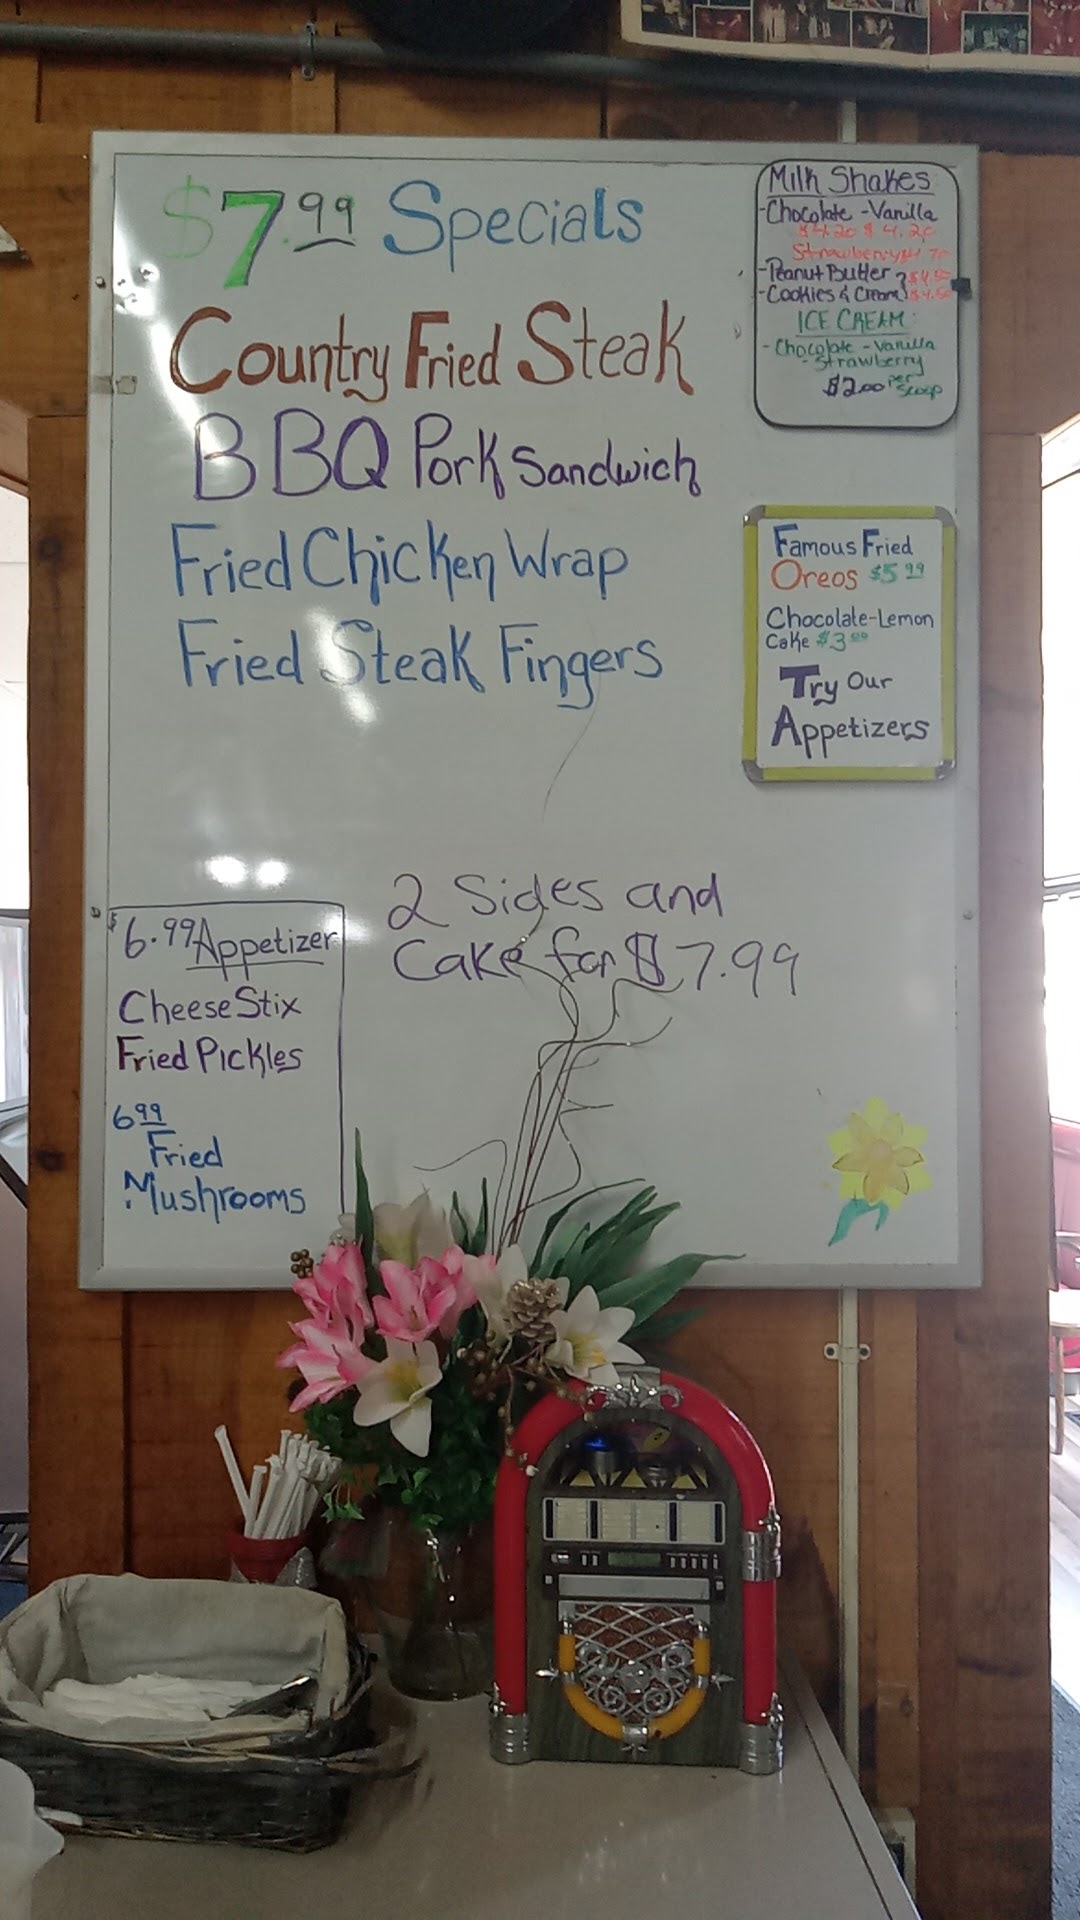 $7.99 Specials
Country Fried Steak
BBQ Pork Sandwich
Fried Chicken Wrap
Fried Steak Fingers
2 Sides and
Cake for $7.99
$6.99 Appetizer
Cheese Stix
Fried Pickles
6.99
Fried
Mushrooms
Milk Shakes
-Chocolate -Vanilla
$4.20 $4.20
Strawberry
-Peanut Butter $4.50
-Cookies & Cream $4.50
ICE CREAM:
-Chocolate -Vanilla
-Strawberry
$2.00 per Scoop
Famous Fried
Oreos $5.99
Chocolate-Lemon
Cake
Try Our
Appetizers